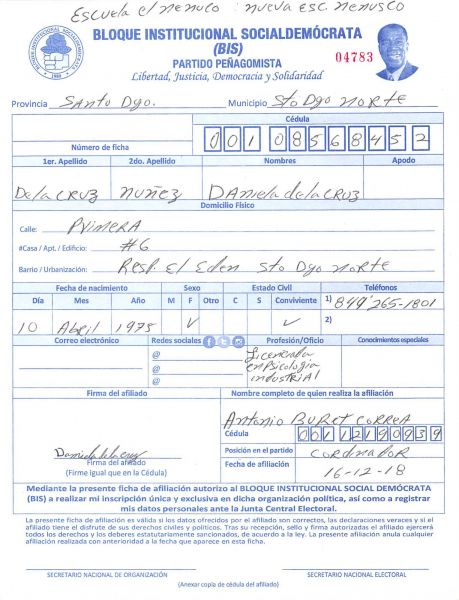 Escuela el nenuco: nueva esc. nenusco
BLOQUE INSTITUCIONAL SOCIALDEMÓCRATA
(BIS)
PARTIDO PEÑAGOMISTA
Libertad, Justicia, Democracia y Solidaridad
04783
Provincia Santo Dgo. Municipio Sto Dgo NORTE
Cédula
Número de ficha 001 0856845 2
1er. Apellido 2do. Apellido Nombres Apodo
De la CRUZ NUÑEZ DANiela de la CRUZ
Domicilio Físico
Calle: PriMERA
#Casa / Apt. / Edificio: #6
Barrio / Urbanización: Resp. El Eden Sto Dgo NORTE
Fecha de nacimiento Sexo Estado Civil Teléfonos
Día Mes Año M F Otro C S Conviviente 1) 849-265-1801
10 Abril 1975 ✓ ✓ 2)
Correo electrónico Redes sociales Profesión/Oficio Conocimientos especiales
@ Licenciada
@ en Psicologia
@ industRiAl
Firma del afiliado Nombre completo de quien realiza la afiliación
Antonio BURET CORREA
Cédula 00112190939
Daniela de la cruz
Firma del afiliado
(Firme igual que en la Cédula)
Posición en el partido CORDinADOR
Fecha de afiliación 16-12-18
Mediante la presente ficha de afiliación autorizo al BLOQUE INSTITUCIONAL SOCIAL DEMÓCRATA
(BIS) a realizar mi inscripción única y exclusiva en dicha organización política, así como a registrar
mis datos personales ante la Junta Central Electoral.
La presente ficha de afiliación es válida si los datos ofrecidos por el afiliado son correctos, las declaraciones veraces y si el
afiliado tiene el disfrute de sus derechos civiles y políticos. Tras su recepción, sello y firma autorizadas el afiliado ejercerá
todos los derechos y los deberes estatutariamente sancionados, de acuerdo a la ley. La presente afiliación anula cualquier
afiliación realizada con anterioridad a la fecha que aparece en esta ficha.
SECRETARIO NACIONAL DE ORGANIZACIÓN SECRETARIO NACIONAL ELECTORAL
(Anexar copia de cédula del afiliado)